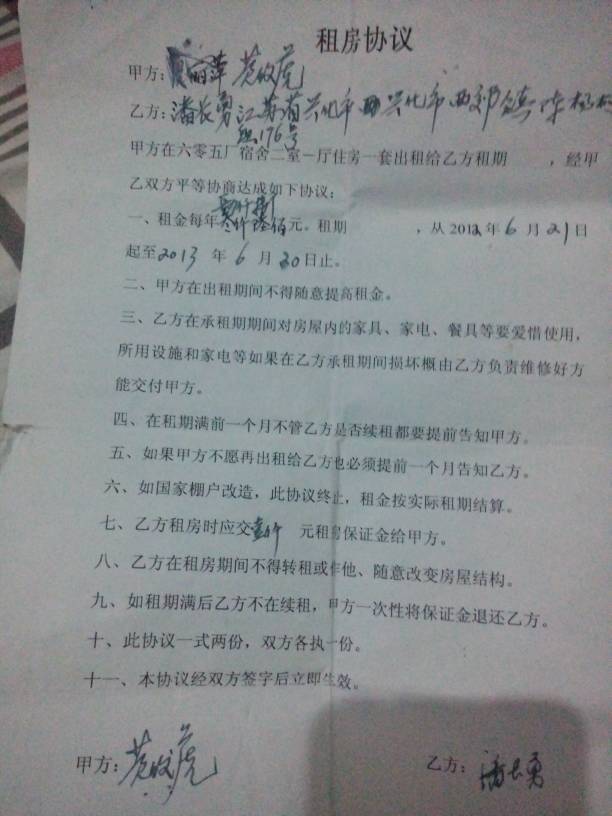 租房协议
甲方：丽萍
乙方：潘长勇 江苏省兴化市 兴化市西郊镇
176号
甲方在六零五厂宿舍二室一厅住房一套出租给乙方租期 ，经甲
乙双方平等协商达成如下协议：
一、租金每年 元。租期 ，从2012年6月21日
起至2013年6月20日止。
二、甲方在出租期间不得随意提高租金。
三、乙方在承租期期间对房屋内的家具、家电、餐具等要爱惜使用，
所用设施和家电等如果在乙方承租期间损坏概由乙方负责维修好方
能交付甲方。
四、在租期满前一个月不管乙方是否续租都要提前告知甲方。
五、如果甲方不愿再出租给乙方也必须提前一个月告知乙方。
六、如国家棚户改造，此协议终止，租金按实际租期结算。
七、乙方租房时应交壹仟 元租房保证金给甲方。
八、乙方在租房期间不得转租或作他、随意改变房屋结构。
九、如租期满后乙方不在续租，甲方一次性将保证金退还乙方。
十、此协议一式两份，双方各执一份。
十一、本协议经双方签字后立即生效。
甲方： 乙方：潘长勇